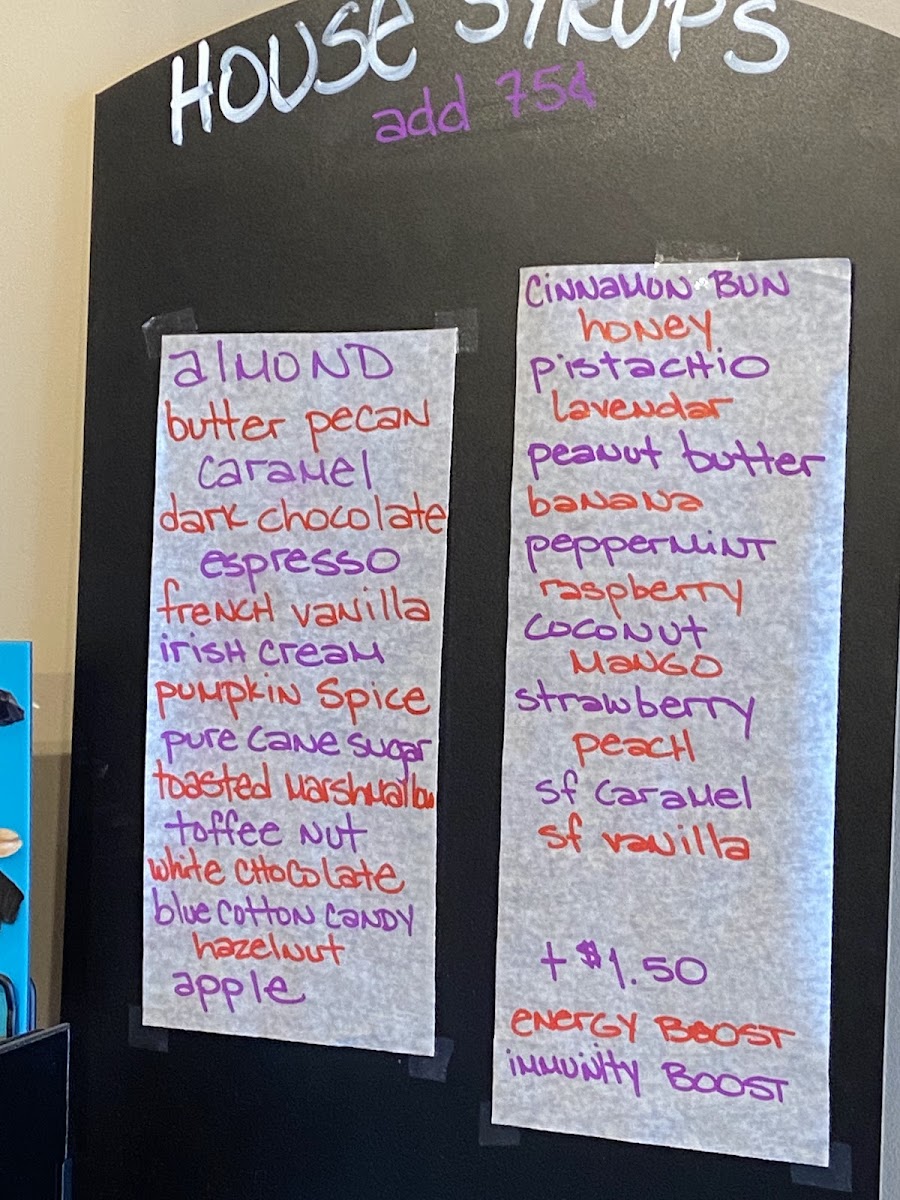 HOUSE SYRUPS
add 75¢
almond
butter pecan
caramel
dark chocolate
espresso
french vanilla
irish cream
pumpkin spice
pure cane sugar
toasted marshmallow
toffee nut
white chocolate
blue cotton candy
hazelnut
apple
cinnamon bun
honey
pistachio
lavendar
peanut butter
banana
peppermint
raspberry
coconut
mango
strawberry
peach
sf caramel
sf vanilla
+ $1.50
energy boost
immunity boost